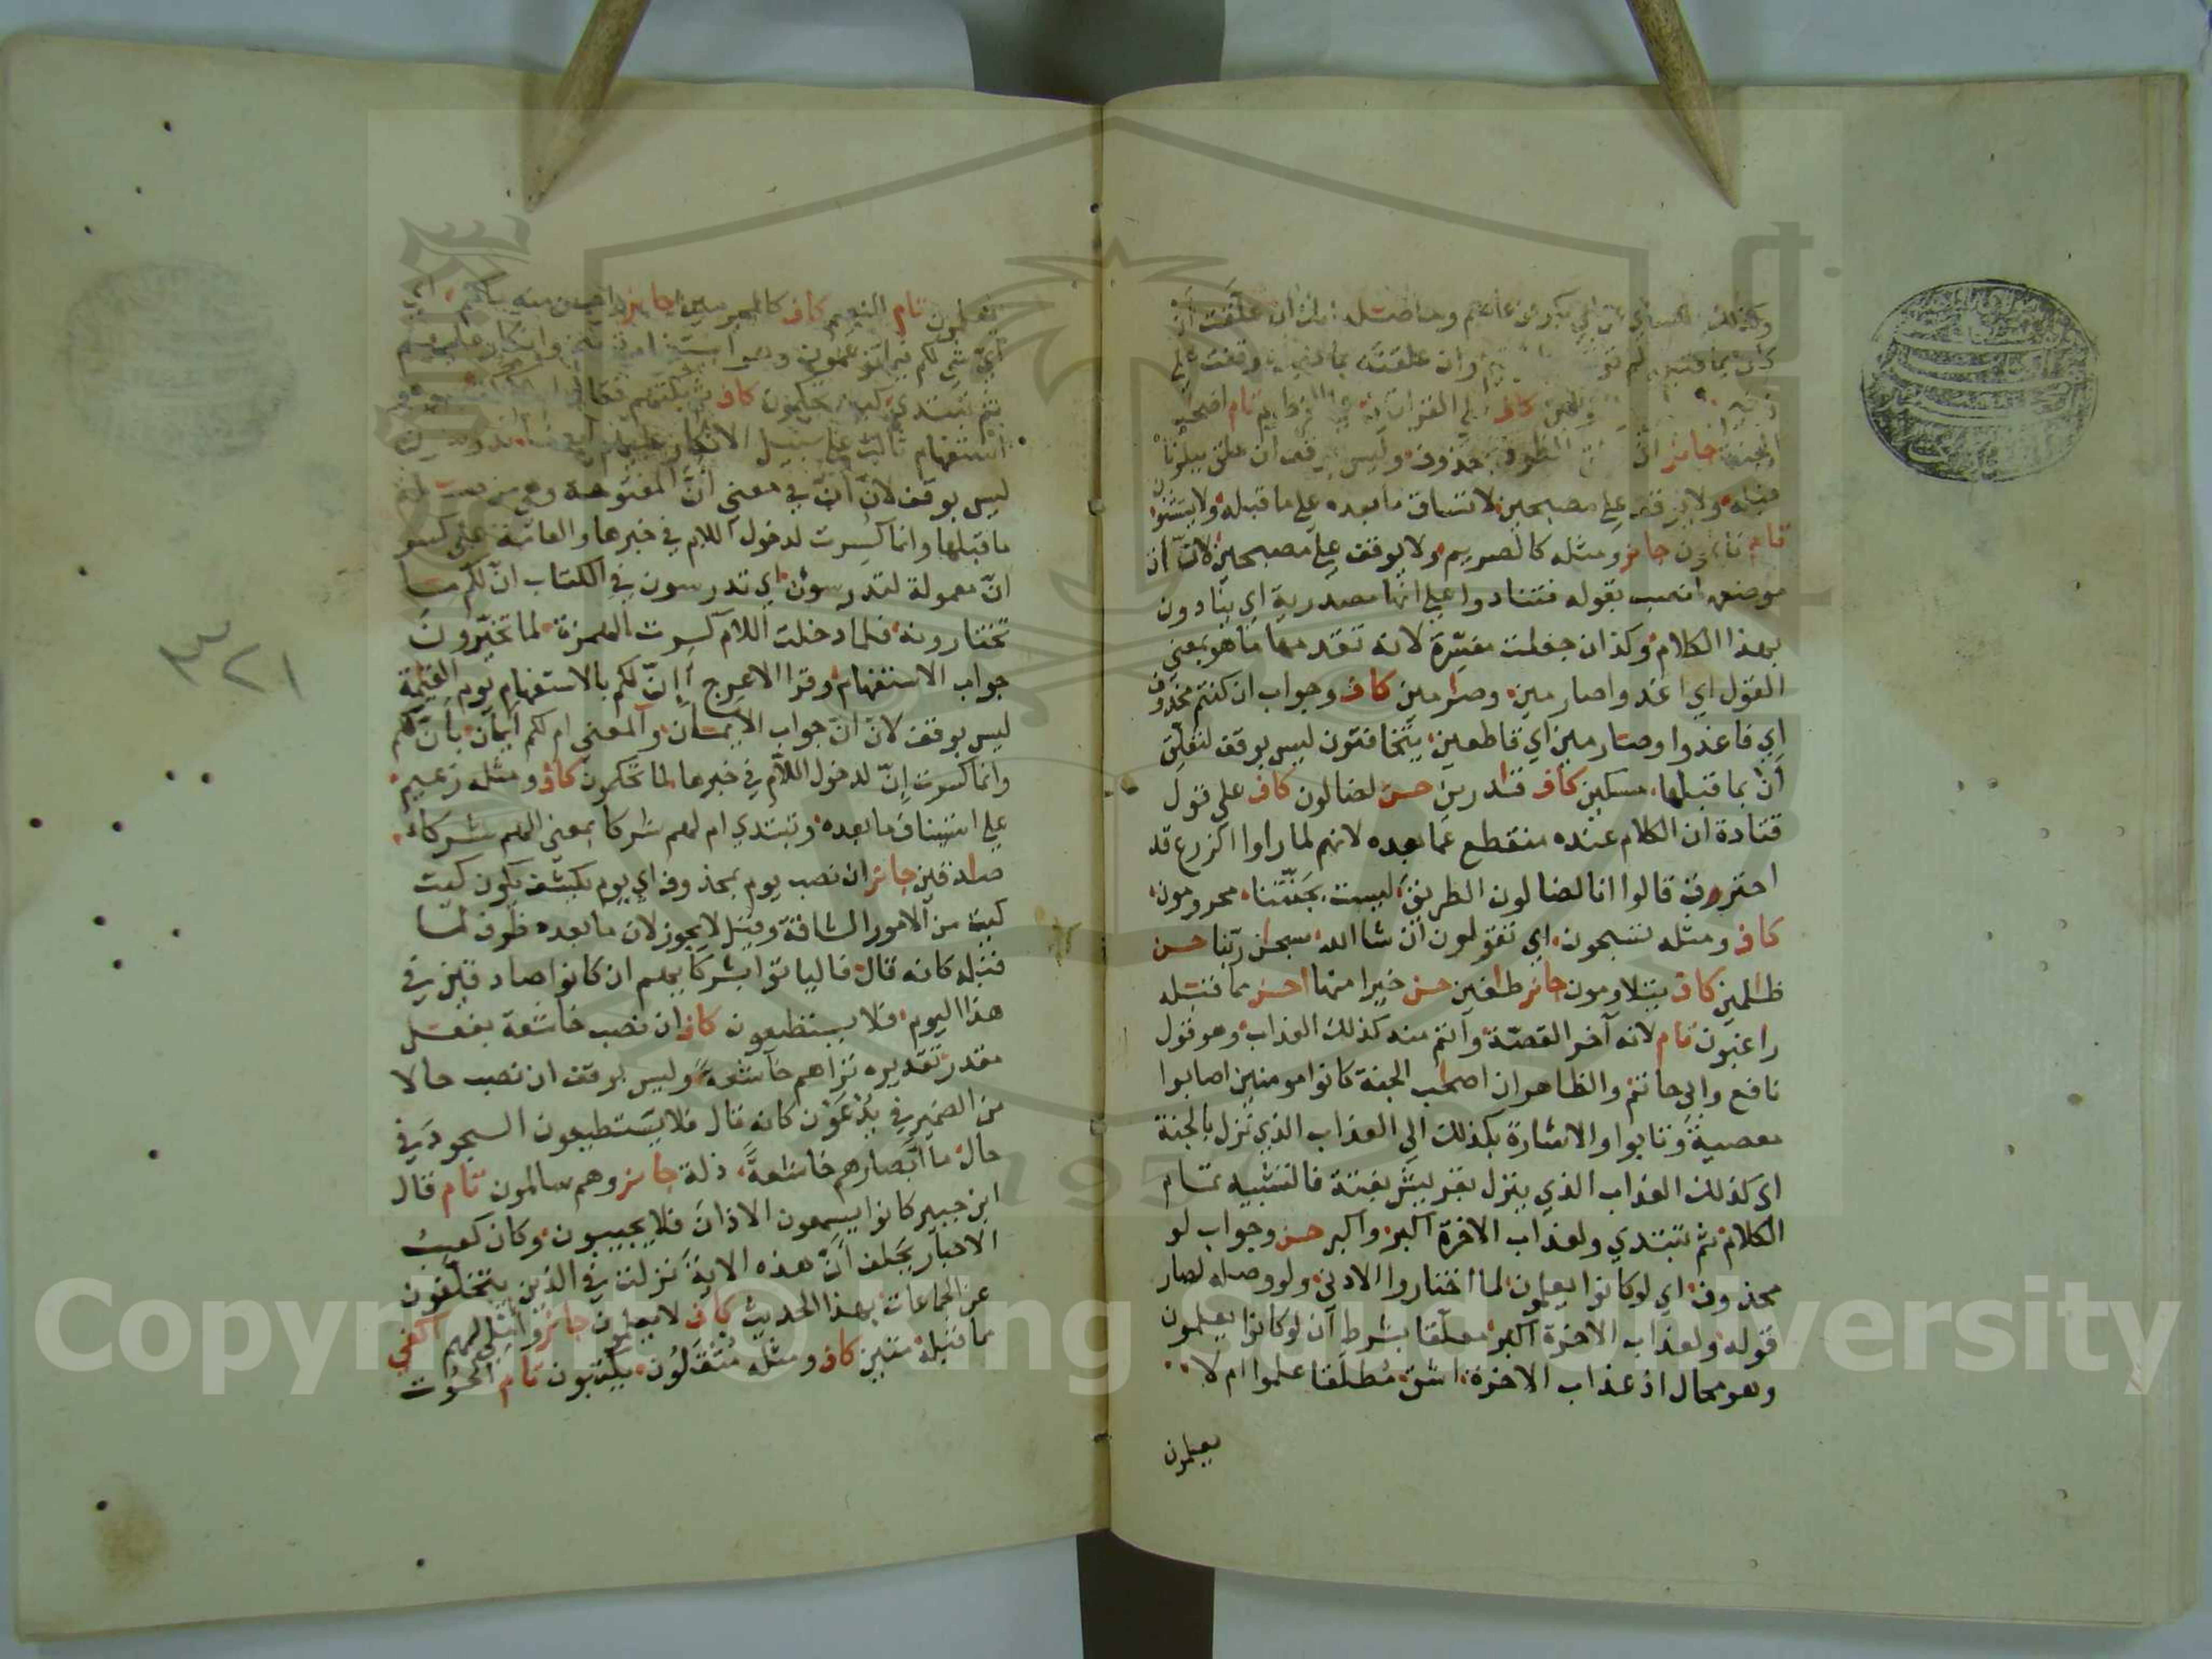 وكذلك الكسائي عن ابي بكر عن عاصم وحاصله انك ان علقت ان
كان بما قبله لم توقف وان علقته بما بعده وقفت على
زنيم
الجنة جائز ان الظرف بمحذوف وليس بوقف ان علق ببلونا
قبله ولا يوقف على مصبحين لاتساق ما بعده على ما قبله ولا يستثنون
تام نائمون جائز ومثله كالصريم ولا يوقف على مصبحين لان ان
موضعها نصب بقوله فتنادوا على انها مصدرية اي بنادون
بهذا الكلام وكذا ان جعلت مفسرة لانه تقدمها ما هو بمعنى
القول اي اغدوا صارمين وصارمين كاف وجواب ان كنتم محذوف
اي فاغدوا وصارمين اي قاطعين يتخافتون ليس بوقف لتعلق
أن بما قبلها مسكين كاف قادرين حسن لضالون كاف على قول
قتادة ان الكلام عنده منقطع عما بعده لانهم لما راوا الزرع قد
احترق قالوا انا لضالون الطريق ليست بجنتنا محرومون
كاف ومثله تسبحون اي تقولون ان شا الله سبحن ربنا حسن
ظلمين كاف يتلاومون جائز طغين حسن خيرا منها احسن مما قبله
راغبون تام لانه آخر القصة وأتم منه كذلك العذاب وهو قول
نافع وابي حاتم والظاهر ان اصحب الجنة كانوا مومنين اصابوا
معصية وتابوا والاشارة بكذلك الى العذاب الذي نزل بالجنة
اي كذلك العذاب الذي ينزل بقريش بغتة فالتشبيه تمام
الكلام ثم تبتدي ولعذاب الاخرة اكبر واكبر حسن وجواب لو
محذوف اي لو كانوا يعلمون لما اختاروا الادنى ولو وصله لصار
قوله ولعذاب الاخرة اكبر معلقا بشرط ان لو كانوا يعلمون
وهو محال اذ عذاب الاخرة اشق مطلقا علموا ام لا
يعلمون
يعلمون تام النعيم كاف كالمجرمين جائز واحسن منه مالكم اي
أي شي لكم فيما تزعمون وهو استفهام توبيخ وانكار عليهم
ثم تبتدي كيف تحكمون كاف ثم بكتهم فقال
استفهام ثالث على سبيل الانكار عليهم ايضا تدرسون
ليس بوقف لان ان في معنى أن المفتوحة وهي من صلة
ما قبلها وانما كسرت لدخول اللام في خبرها والعامة على كسر
ان معمولة لتدرسون اي تدرسون في الكتاب ان لكم ما
تختارونه فلما دخلت اللام كسرت الهمزة لما تخيرون
جواب الاستفهام وقرا الاعرج أإن لكم بالاستفهام يوم القيمة
ليس بوقف لان ان جواب الايمان والمعنى ام لكم ايمان بان لكم
وانما كسرت إن لدخول اللام في خبرها لما تحكمون كاف ومثله زعيم
على استيناف ما بعده وتبتدي ام لهم شركا بمعنى الهم شركاء
صادقين جائز ان نصب يوم بمحذوف اي يوم يكشف يكون كيت
كيت من الامور الشاقة وقيل لا يجوز لان ما بعده ظرف لما
قبله كانه قال فلياتوا بشركايهم ان كانوا صادقين في
هذا اليوم فلا يستطيعون كاف ان نصب خاشعة بفعل
مقدر تقديره تراهم خاشعة وليس بوقف ان نصب حالا
من الضمير في يدعون كانه قال فلا يستطيعون السجود في
حال ما ابصارهم خاشعة ذلة جائز وهم سالمون تام قال
ابن جبير كانوا يسمعون الاذان فلا يجيبون وكان كعب
الاحبار يحلف ان هذه الاية نزلت في الذين يتخلفون
عن الجماعات بهذا الحديث كاف لا يعلمون جائز وأملي لهم اكفى
مما قبله متين كاف ومثله مثقلون يكتبون تام الحوت
٣٢١
Copyright © King Saud University
1957